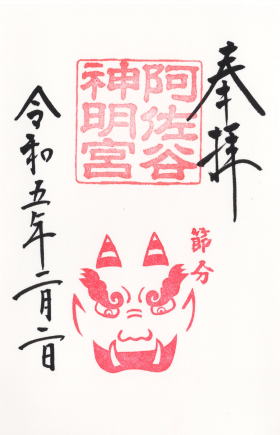 奉拝
阿佐谷
神明宮
節分
令和五年二月二日